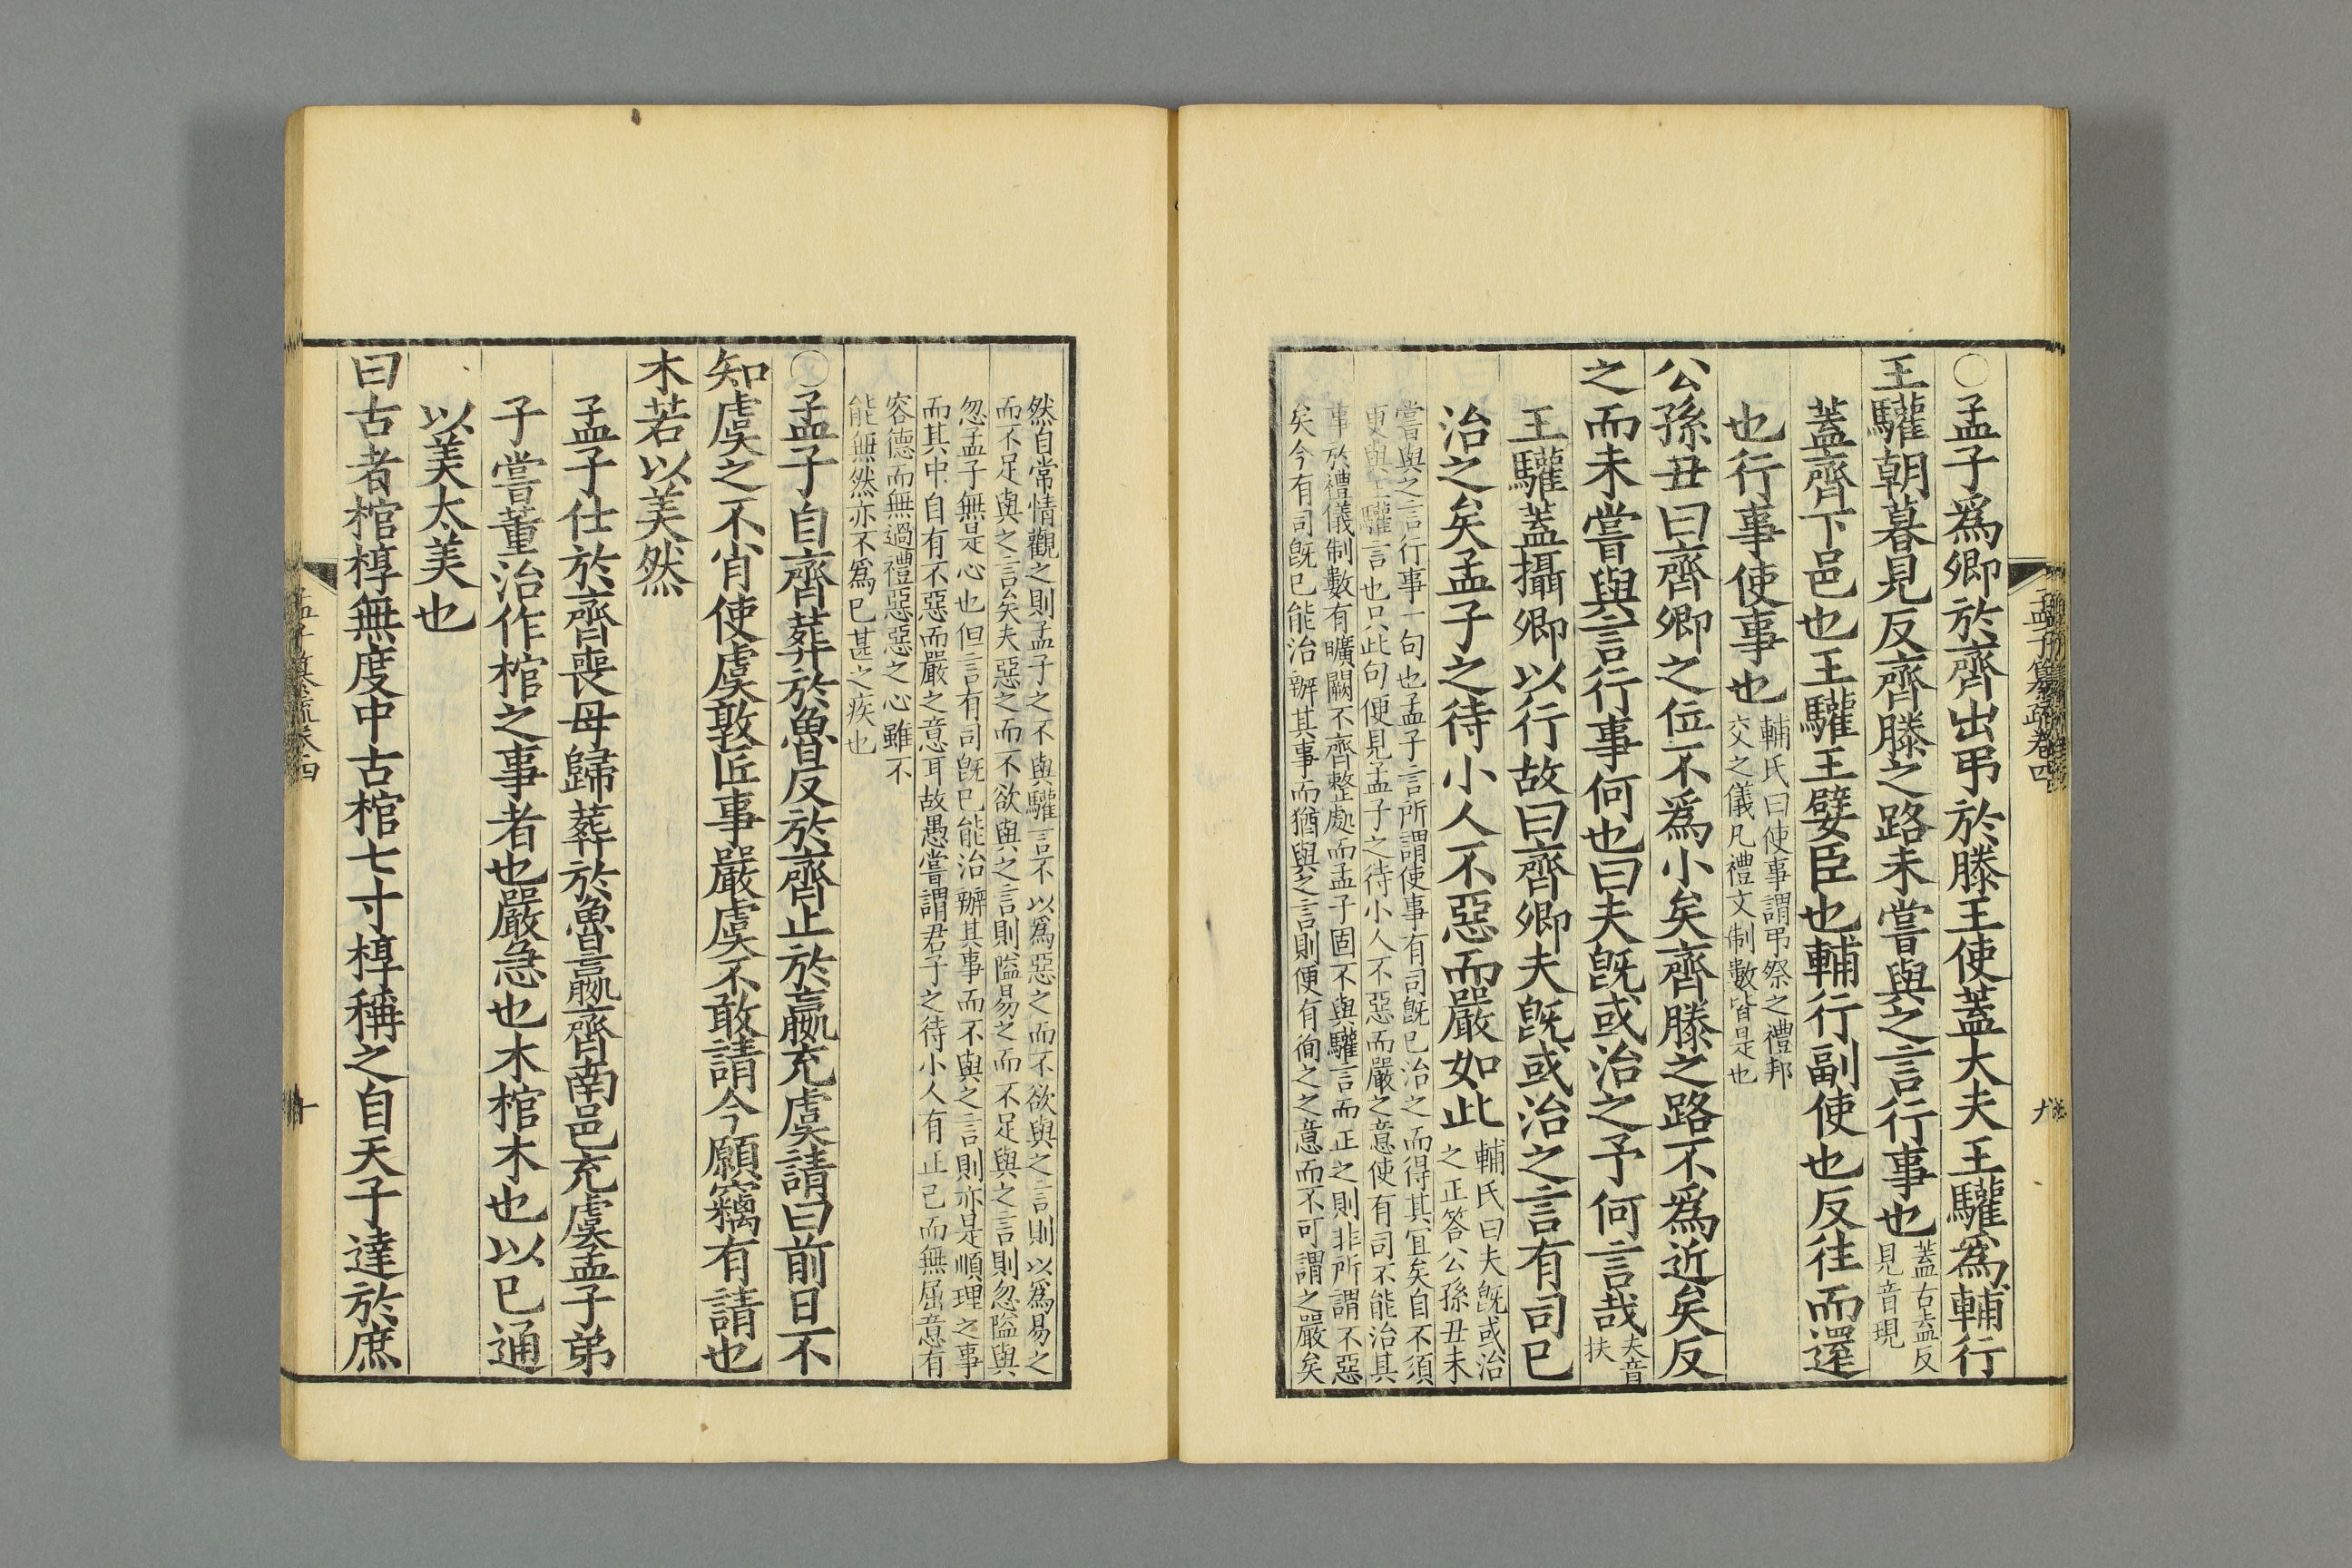 〇孟子爲卿於齊出弔於滕王使蓋大夫王驩爲輔行
王驩朝暮見反齊滕之路未嘗與之言行事也
蓋古盍反
見音現
蓋齊下邑也王驩王嬖臣也輔行副使也反往而還
也行事使事也
輔氏曰使事謂弔祭之禮邦
交之儀凡禮文制數皆是也
公孫丑曰齊卿之位不爲小矣齊滕之路不爲近矣反
之而未嘗與言行事何也曰夫旣或治之予何言哉
夫音
扶
王驩蓋攝卿以行故曰齊卿夫旣或治之言有司已
治之矣孟子之待小人不惡而嚴如此
輔氏曰夫旣或治
之正答公孫丑未
嘗與之言行事一句也孟子言所謂使事有司旣已治之而得其宜矣自不須
更與王驩言也只此句便見孟子之待小人不惡而嚴之意使有司不能治其
事於禮儀制數有曠闕不齊整處而孟子固不與驩言而正之則非所謂不惡
矣今有司旣已能治辦其事而猶與之言則便有徇之之意而不可謂之嚴矣
孟子篹疏卷四
九
然自常情觀之則孟子之不與驩言不以爲惡之而不欲與之言則以爲易之
而不足與之言矣夫惡之而不欲與之言則隘易之而不足與之言則忽隘與
忽孟子無是心也但言有司旣已能治辦其事而不與之言則亦是順理之事
而其中自有不惡而嚴之意耳故愚嘗謂君子之待小人有正已而無屈意有
容德而無過禮惡惡之心雖不
能無然亦不爲已甚之疾也
〇孟子自齊葬於魯反於齊止於嬴充虞請曰前日不
知虞之不肖使虞敦匠事嚴虞不敢請今願竊有請也
木若以美然
孟子仕於齊喪母歸葬於魯嬴齊南邑充虞孟子弟
子嘗董治作棺之事者也嚴急也木棺木也以已通
以美太美也
曰古者棺椁無度中古棺七寸椁稱之自天子達於庶
孟子篹疏卷四
十